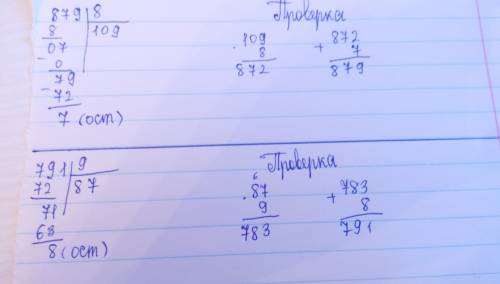 879 | 8
8 109
07
- 0
79
- 72
7 (ост)
Проверка
. 109
8
872
+ 872
7
879
791 | 9
72 87
71
63
8 (ост)
Проверка
6
. 87
9
783
+ 783
8
791